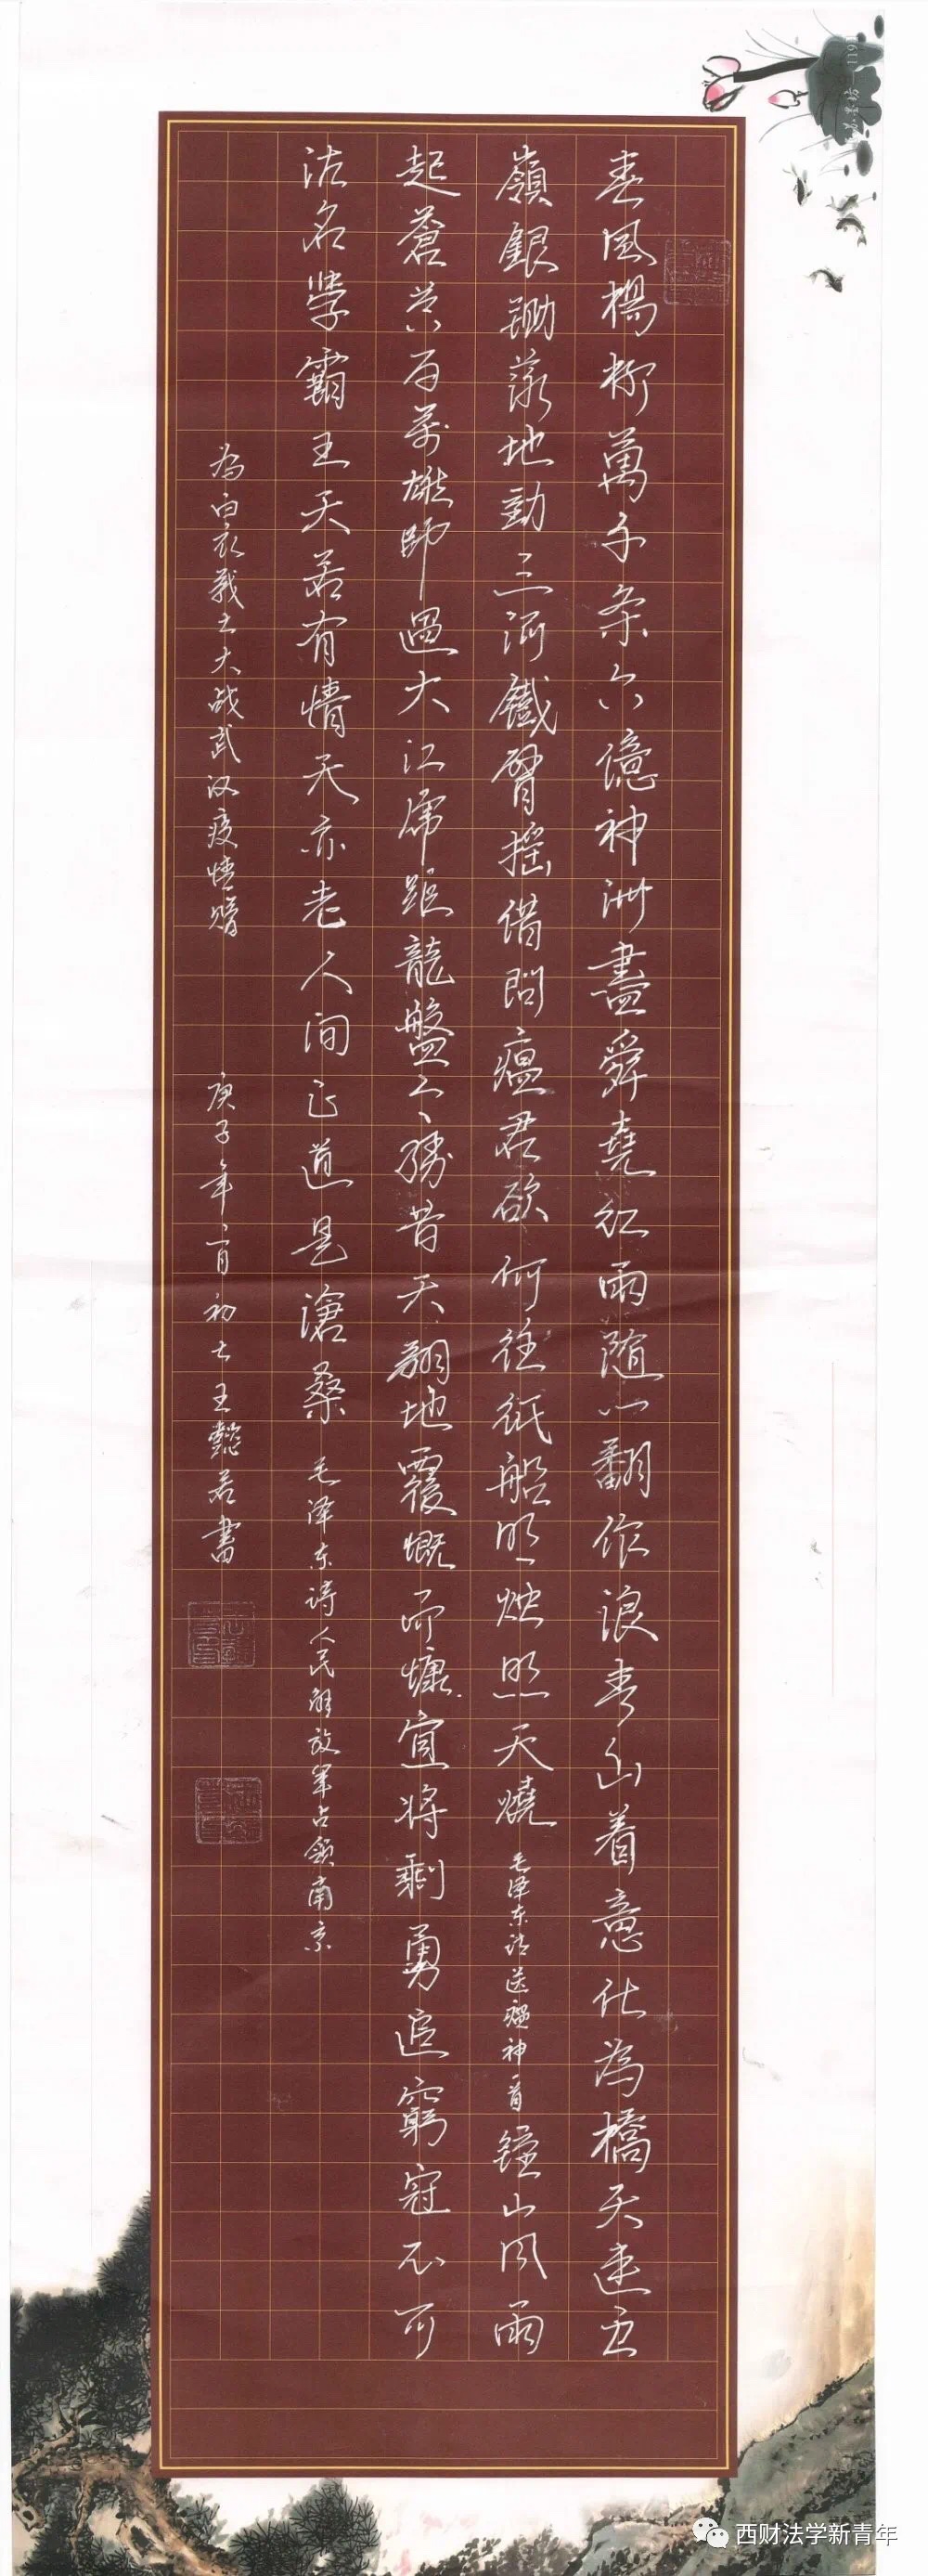 春風楊柳萬千条六億神洲盡舜堯红雨随心翻作浪青山着意化為橋天連五
嶺銀鋤落地動三河鐵臂摇借問瘟君欲何往紙船明烛照天燒 毛泽东诗送瘟神一首 鐘山风雨
起蒼黄百萬雄師過大江虎踞龍盤今勝昔天翻地覆慨而慷宜将剩勇追窮寇不可
沽名學霸王天若有情天亦老人间正道是滄桑 毛泽东诗人民解放军占领南京
為白衣戰士大战武汉疫情赠 庚子年一月初七王懿若書
西财法学新青年